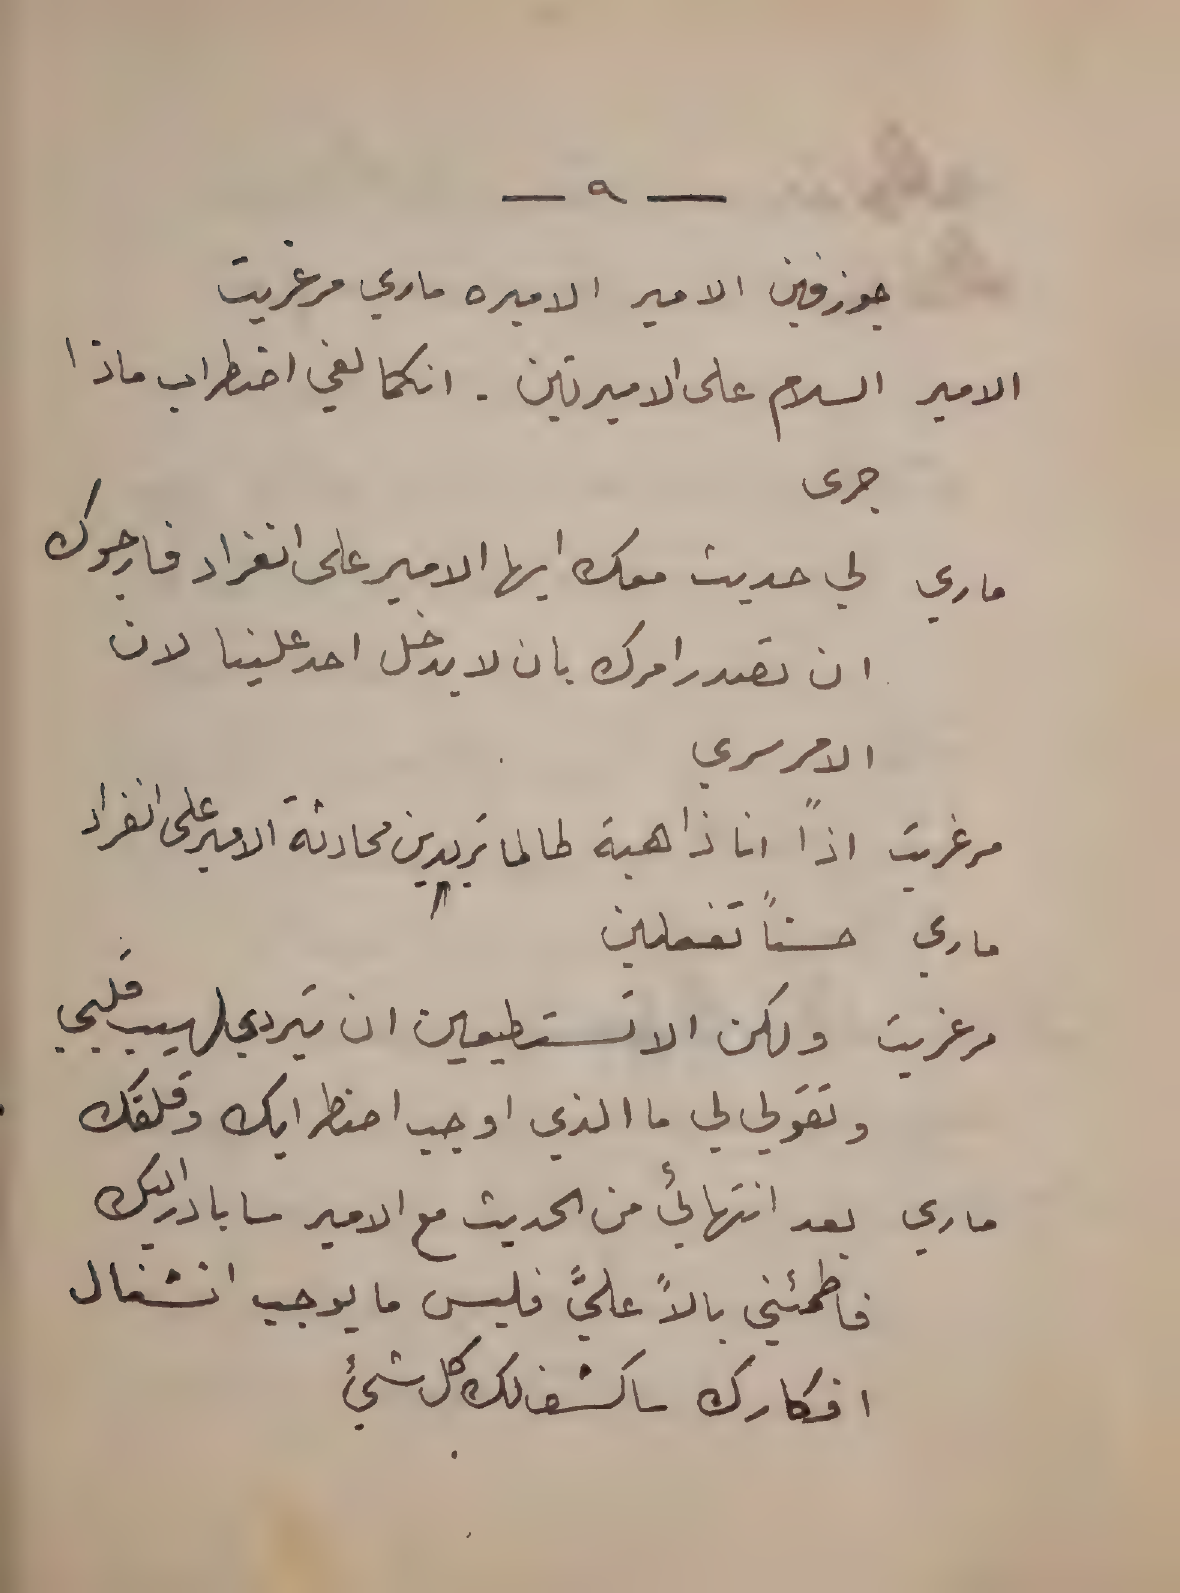 — ٩ —
جوزفين الامير الاميره ماري مرغريت
الامير السلام على الاميرتين . انكما لفي اضطراب ماذا
جرى
ماري لي حديث معك ايها الامير على انفراد فارجوك
ان تصدر امرك بان لا يدخل احد علينا لان
الامر سري
مرغريت اذاً انا ذاهبة طالما تريدين محادثة الامير على انفراد
ماري حسناً تفعلين
مرغريت ولكن الا تستطيعين ان تبردي لهيب قلبي
وتقولي لي ما الذي اوجب اضطرابك وقلقك
ماري بعد انتهائي من الحديث مع الامير سابادر اليك
فاطمئني بالاً عليَّ فليس ما يوجب انشغال
افكارك ساكشف لك كل شيئ